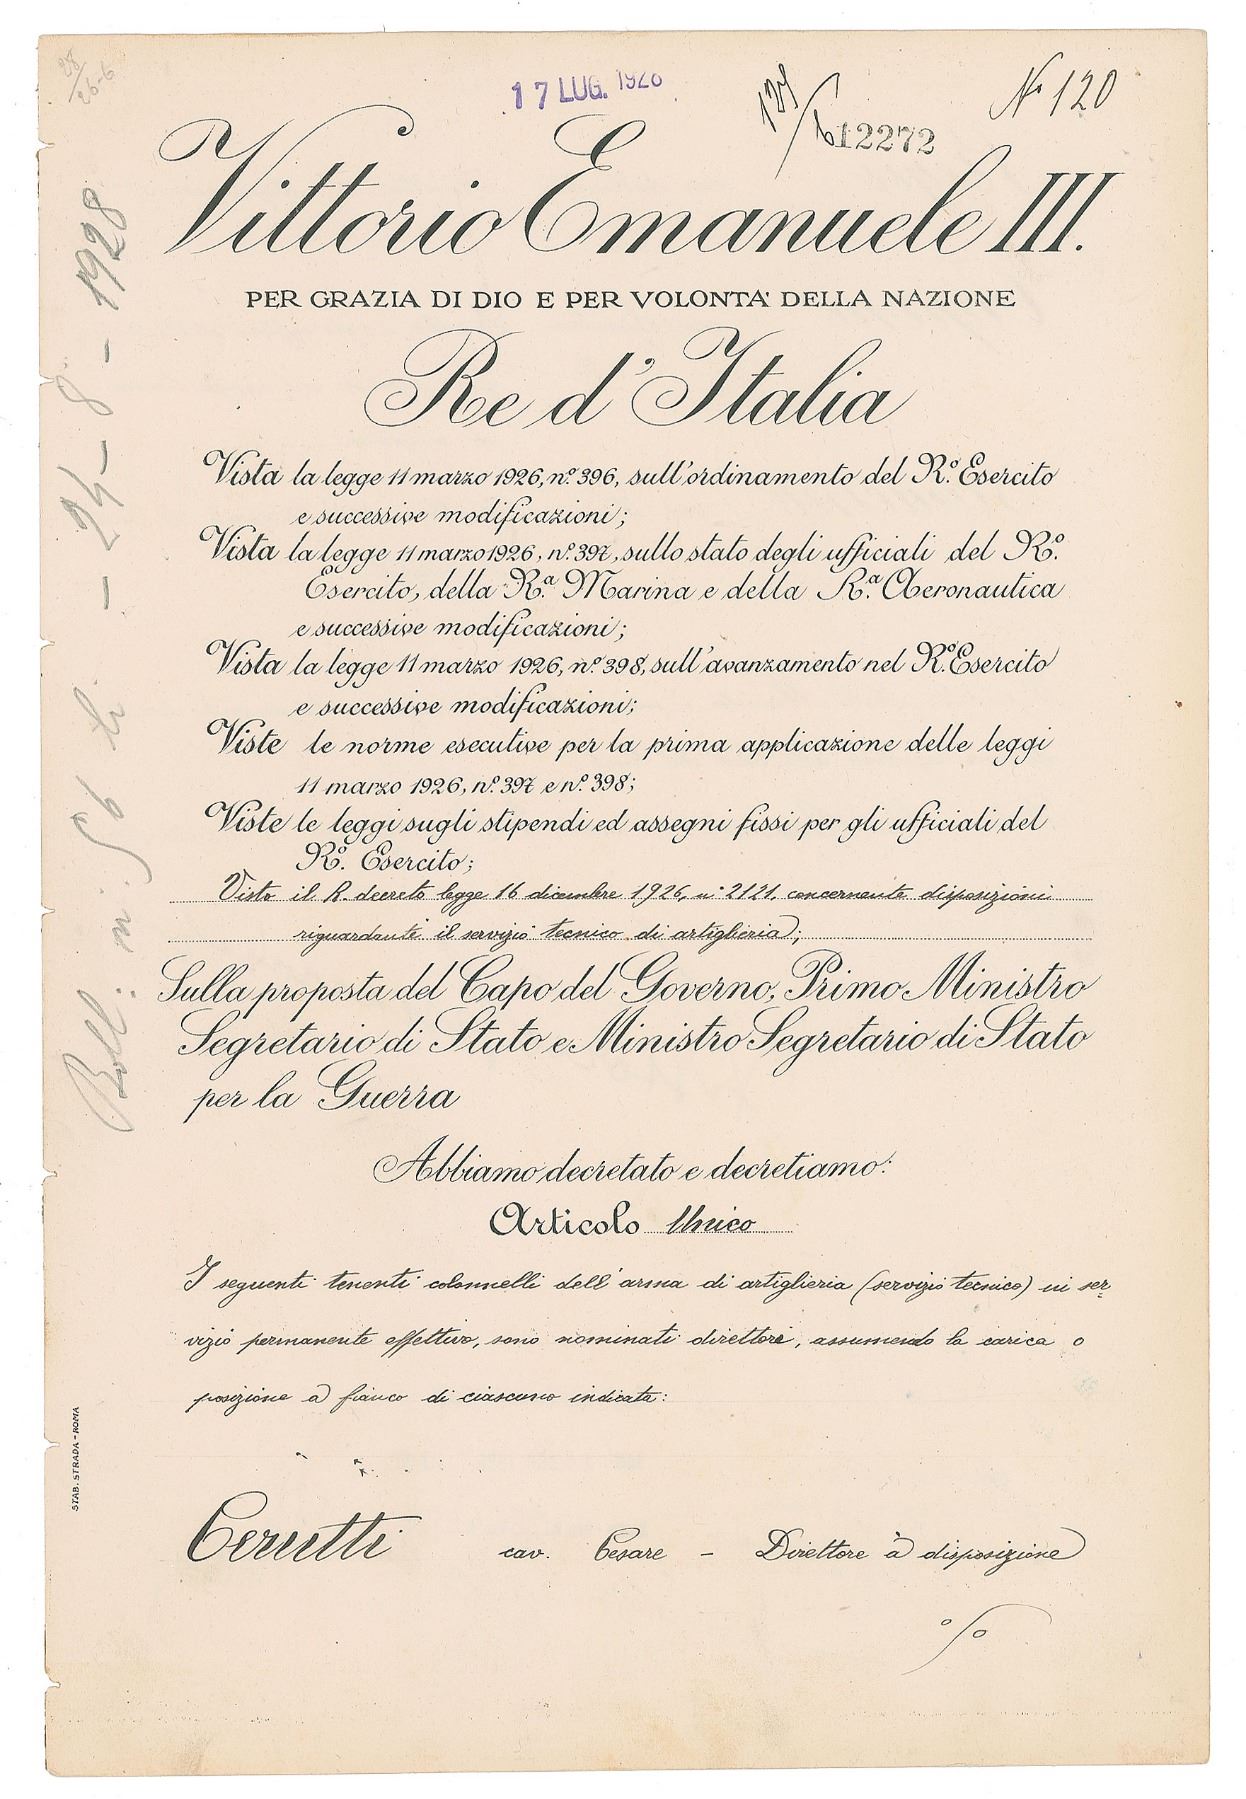 28/26-6
17 LUG. 1928
12272
Nº 120
Vittorio Emanuele III.
PER GRAZIA DI DIO E PER VOLONTA' DELLA NAZIONE
Re d'Italia
Vista la legge 11 marzo 1926, nº. 396, sull'ordinamento del Rº. Esercito
e successive modificazioni;
Vista la legge 11 marzo 1926, nº. 397, sullo stato degli ufficiali del Rº.
Esercito, della Rª. Marina e della Rª. Aeronautica
e successive modificazioni;
Vista la legge 11 marzo 1926, nº. 398, sull'avanzamento nel Rº. Esercito
e successive modificazioni;
Viste le norme esecutive per la prima applicazione delle leggi
11 marzo 1926, nº. 397 e nº. 398;
Viste le leggi sugli stipendi ed assegni fissi per gli ufficiali del
Rº. Esercito;
Visto il R. decreto legge 16 dicembre 1926, n° 2121, concernente disposizioni
riguardante il servizio tecnico di artiglieria;
Sulla proposta del Capo del Governo, Primo Ministro
Segretario di Stato e Ministro Segretario di Stato
per la Guerra
Abbiamo decretato e decretiamo:
Articolo Unico
I seguenti tenenti colonnelli dell'arma di artiglieria (servizio tecnico) in ser-
vizio permanente effettivo, sono nominati direttori, assumendo la carica o
posizione a fianco di ciascuno indicata:
Cerutti cav. Cesare - Direttore a disposizione
%
Boll. m. 56 - 24 - 8 - 1928
STAB. STRADA - ROMA